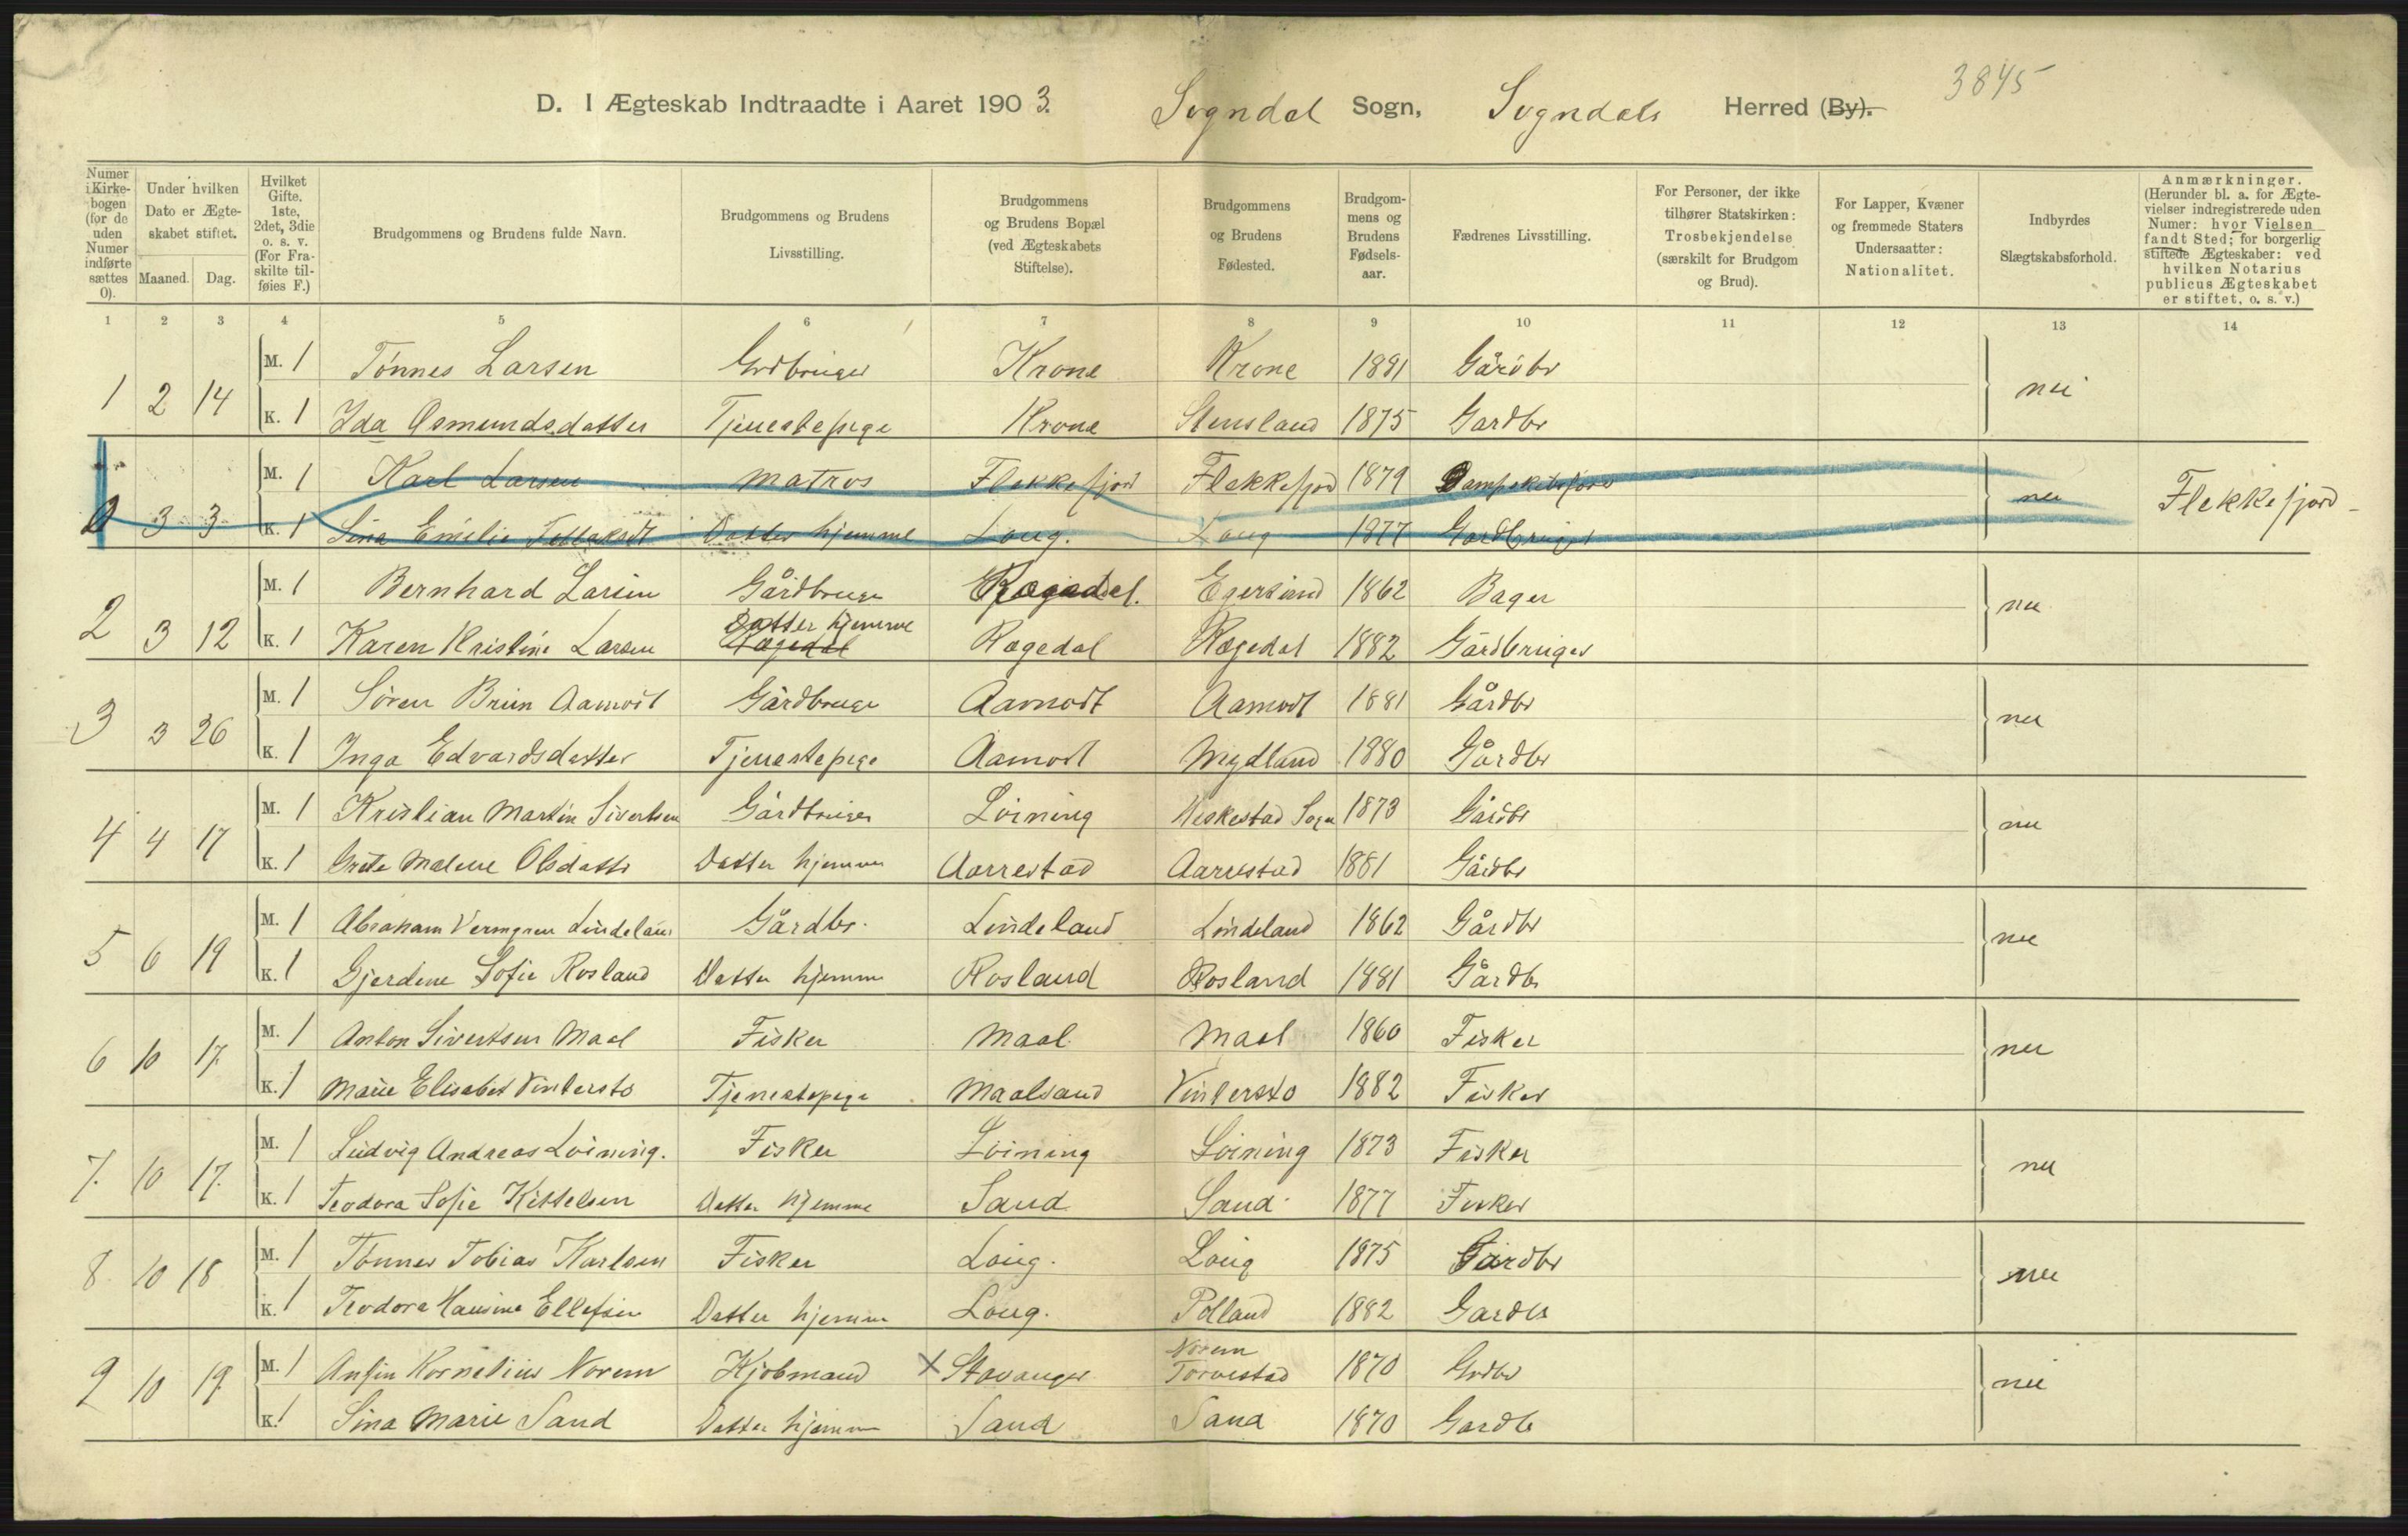 3845
D. I Ægteskab Indtraadte i Aaret 1903. Sogndal Sogn, Sogndals Herred (By).
Numer i Kirkebogen (for de uden Numer indførte sættes 0).
Under hvilken Dato er Ægteskabet stiftet.
Maaned. Dag.
Hvilket Gifte, 1ste, 2det, 3die o. s. v. (For Fraskilte tilføies F.)
Brudgommens og Brudens fulde Navn.
Brudgommens og Brudens Livsstilling.
Brudgommens og Brudens Bopæl (ved Ægteskabets Stiftelse).
Brudgommens og Brudens Fødested.
Brudgommens og Brudens Fødselsaar.
Fædrenes Livsstilling.
For Personer, der ikke tilhører Statskirken: Trosbekjendelse (særskilt for Brudgom og Brud).
For Lapper, Kvæner og fremmede Staters Undersaatter: Nationalitet.
Indbyrdes Slægtskabsforhold.
Anmærkninger. (Herunder bl. a. for Ægtevielser indregistrerede uden Numer: hvor Vielsen fandt Sted; for borgerlig stiftede Ægteskaber: ved hvilken Notarius publicus Ægteskabet er stiftet, o. s. v.)
1 2 3 4 5 6 7 8 9 10 11 12 13 14
1 2 14 M. 1 Tönnes Larsen Grdbruger Krone Krone 1881 Gårdbr nei
K. 1 Ida Asmundsdatter Tjenestepige Krone Stensland 1875 Gardbr
0 3 3 M. 1 Karl Larsen Matros Flekkefjord Flekkefjord 1879 nei Flekkefjord
K. 1 Sina Emilie Datter hjemme Loug. Loug 1877 Gardbruger
2 3 12 M. 1 Bernhard Larsen Gårdbruger Rægedal. Egersund 1862 Bager nei
K. 1 Karen Kristine Larsen Datter hjemme Rægedal Rægedal Rægedal 1882 Gårdbruger
3 3 26 M. 1 Sören Briin Aamodt Gårdbruger Aamodt Aamodt 1881 Gårdbr nei
K. 1 Inga Edvardsdatter Tjenestepige Aamodt Mydland 1880 Gårdbr
4 4 17 M. 1 Kristian Martin Sivertsen Gårdbruger Löining Heskestad Sogn 1873 Gårdbr nei
K. 1 Grete Malene Olsdatter Datter hjemme Aarrestad Aarrestad 1881 Gårdbr
5 6 19 M. 1 Abraham Vermgren Lindeland Gårdbr. Lindeland Lindeland 1862 Gårdbr nei
K. 1 Gjerdene Sofie Rosland Datter hjemme Rosland Rosland 1881 Gårdb
6 10 17 M. 1 Anton Sivertsen Maal Fisker Maal Maal 1860 Fisker nei
K. 1 Marie Elisabet Vintersto Tjenestepige Maalsand Vintersto 1882 Fisker
7. 10 17. M. 1 Ludvig Andreas Löining. Fisker Löining Löining 1873 Fisker nei
K. 1 Teodora Sofie Kittelsen Datter hjemme Sand Sand 1877 Fisker
8 10 18 M. 1 Tönnes Tobias Karlsen Fisker Loug. Loug 1875 Gårdbr nei
K. 1 Teodora Hansine Ellefsen Datter hjemme Loug. Polland 1882 Gardbr
9 10 19. M. 1 Anfin Kornelius Norem Kjöbmand × Stavanger Norem Torvestad 1870 Grdbr nei
K. 1 Sina Marie Sand Datter hjemme Sand Sand 1870 Gardb